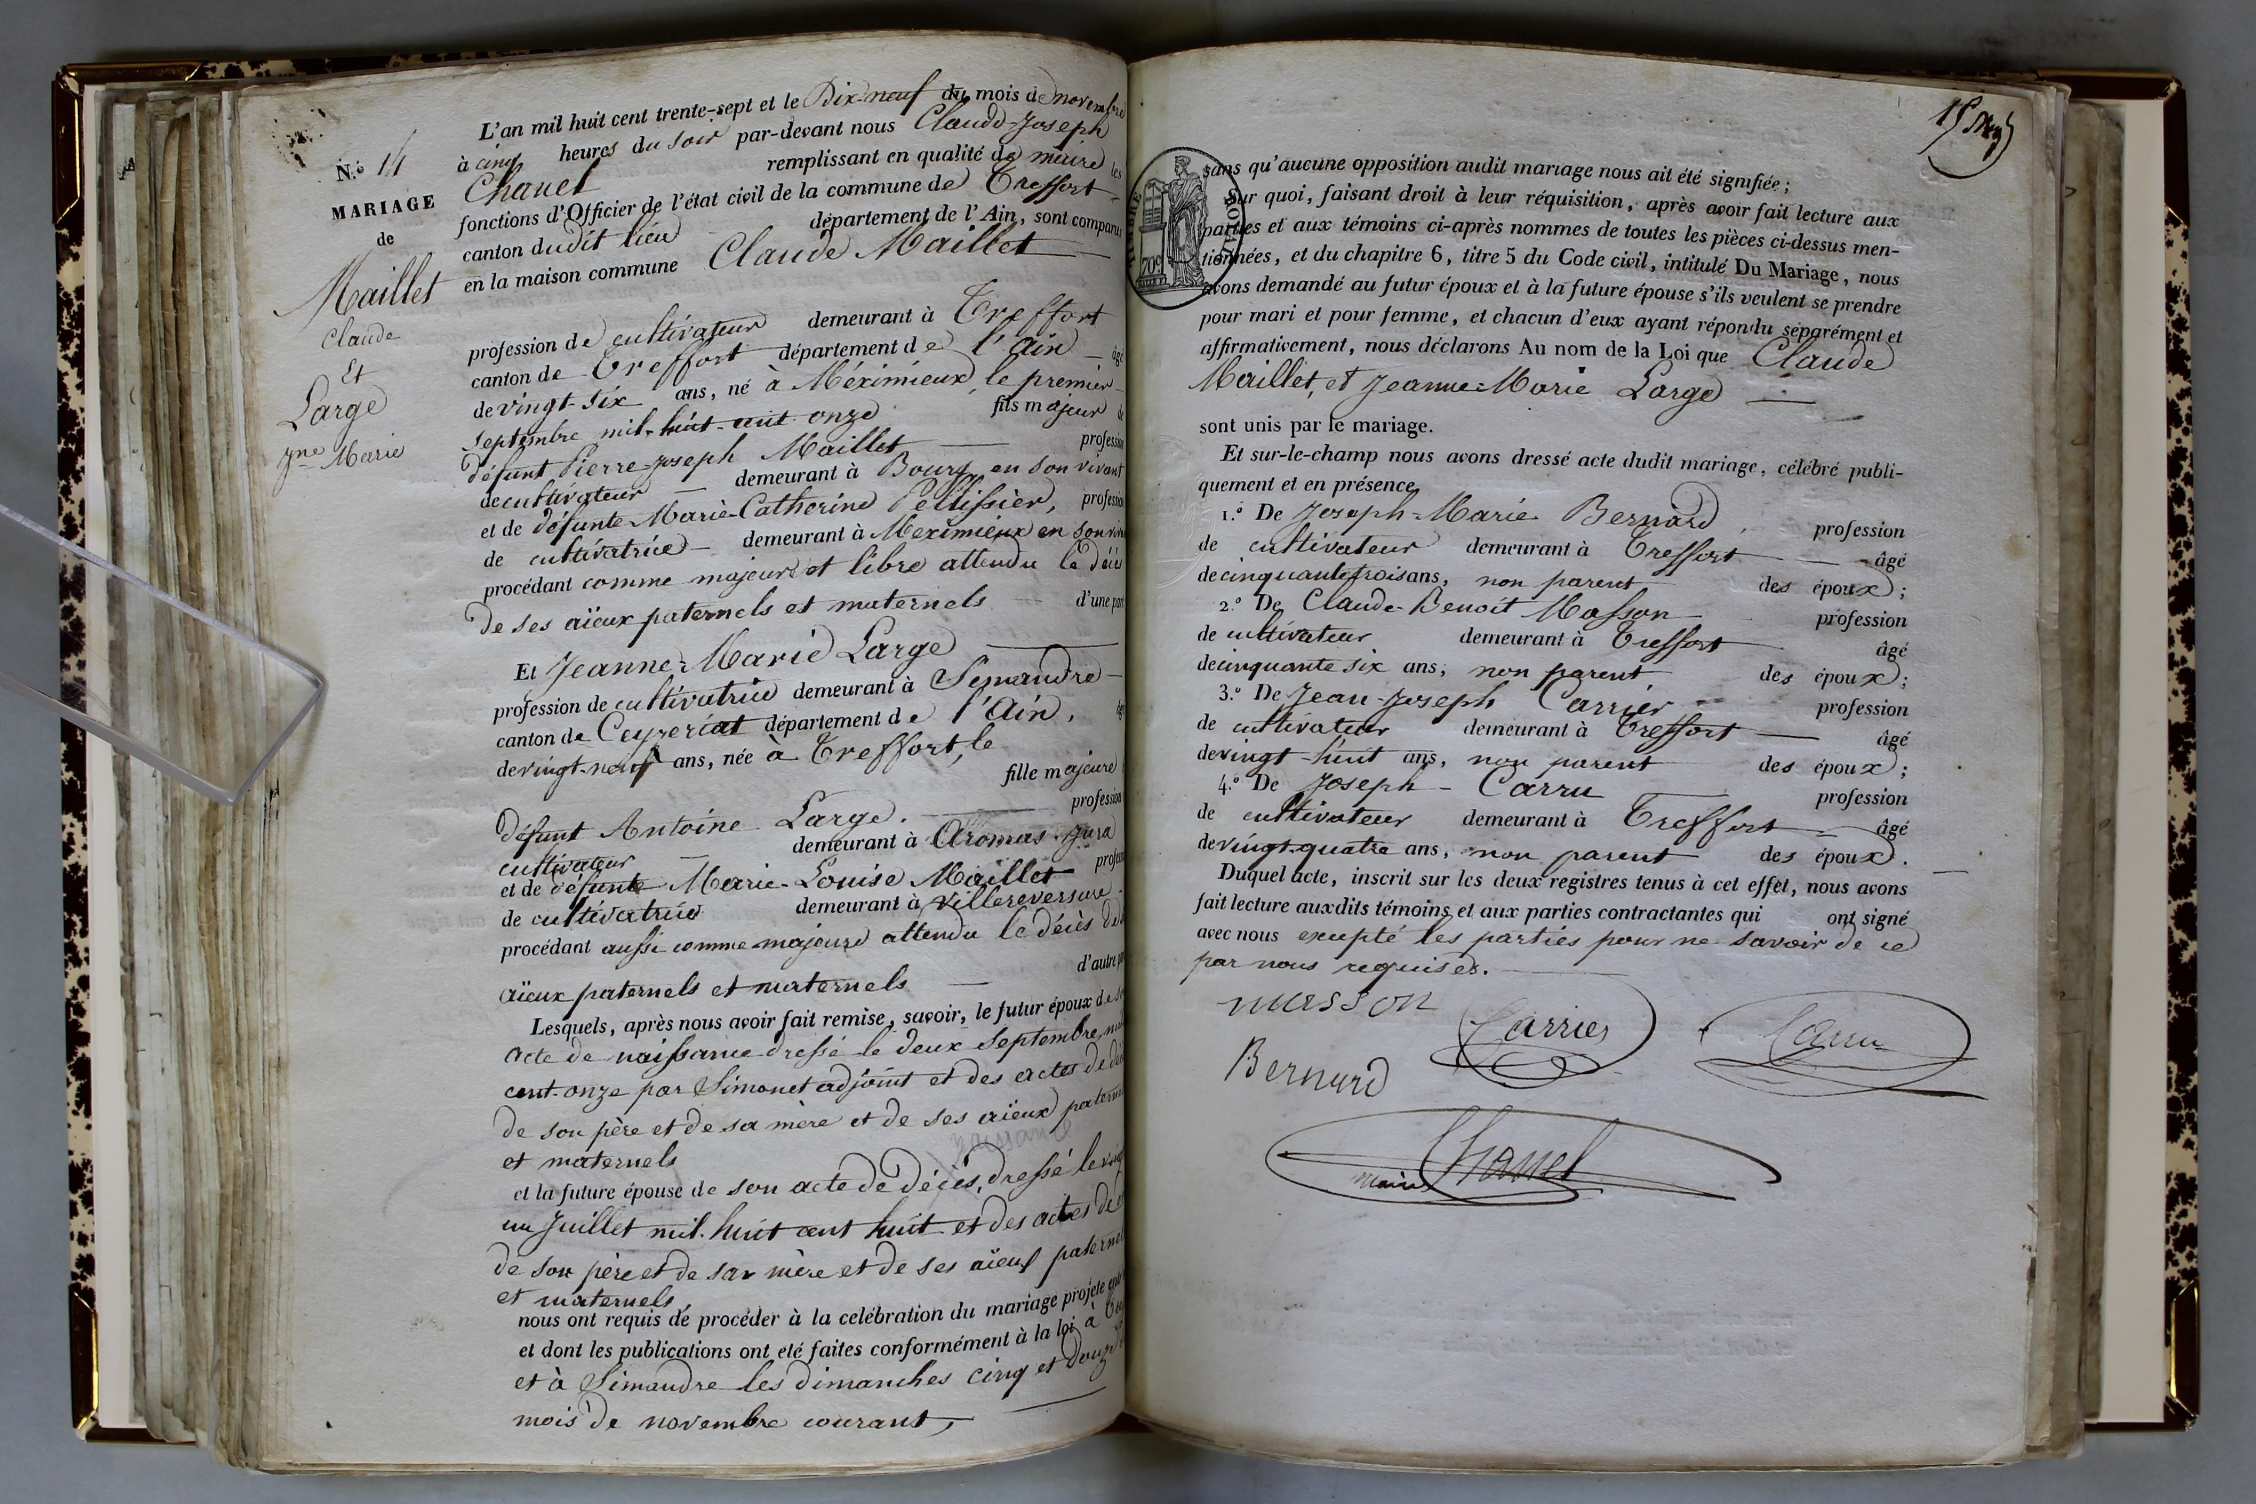 N.o 14
MARIAGE
de
Maillet
Claude
Et
Large
Jne Marie
L'an mil huit cent trente-sept et le Dix-neuf du mois de novembre
à cinq heures du soir par-devant nous Claude-Joseph
Chanel remplissant en qualité de maire les
fonctions d'Officier de l'état civil de la commune de Treffort
canton dudit lieu département de l'Ain, sont comparus
en la maison commune Claude Maillet
profession de cultivateur demeurant à Treffort
canton de Treffort département de l'Ain âgé
de vingt-six ans, né à Méximieux le premier
septembre mil-huit-cent onze fils majeur de
défunt Pierre-Joseph Maillet profession
de cultivateur demeurant à Bourg en son vivant
et de défunte Marie-Catherine Pellissier, profession
de cultivatrice demeurant à Meximieux en son viv
procédant comme majeur et libre attendu le décès
de ses aïeux paternels et maternels d'une part
Et Jeanne-Marie Large
profession de cultivatrice demeurant à Simandre
canton de Ceyzeriat département de l'Ain, âgé
de vingt-neuf ans, née à Treffort, le
fille majeure
défunt Antoine Large. profession
cultivateur demeurant à Aromas Jura
et de défunte Marie-Louise Maillet profess
de cultivatrice demeurant à Villereversure
procédant aussi comme majeure attendu le décès de
aïeux paternels et maternels d'autre pa
Lesquels, après nous avoir fait remise, savoir, le futur époux de son
acte de naissance dressé le deux septembre mil
cent-onze par Simonet adjoint et des actes de déc
de son père et de sa mère et de ses aïeux paternels
et maternels
naissance
et la future épouse de son acte de décès, dressé le vingt
un Juillet mil-huit cent huit et des actes de
de son père et de sa mère et de ses aïeux paternel
et maternels,
nous ont requis de procéder à la celébration du mariage projeté entr
et dont les publications ont eté faites conformément à la loi à Tre
et à Simandre les dimanches cinq et douze
mois de novembre courant,
sans qu'aucune opposition audit mariage nous ait été signifiée;
Sur quoi, faisant droit à leur réquisition, après avoir fait lecture aux
parties et aux témoins ci-après nommes de toutes les pièces ci-dessus men-
tionnées, et du chapitre 6, titre 5 du Code civil, intitulé Du Mariage, nous
avons demandé au futur époux et à la future épouse s'ils veulent se prendre
pour mari et pour femme, et chacun d'eux ayant répondu séparément et
affirmativement, nous déclarons Au nom de la Loi que Claude
Maillet, et Jeanne-Marie Large
sont unis par le mariage.
Et sur-le-champ nous avons dressé acte dudit mariage, célébré publi-
quement et en présence
1.o De Joseph-Marie Bernard profession
de cultivateur demeurant à Treffort âgé
de cinquante trois ans, non parent des époux;
2.o De Claude-Benoit Masson profession
de cultivateur demeurant à Treffort âgé
de cinquante six ans, non parent des époux;
3.o De Jean-Joseph Carrier profession
de cultivateur demeurant à Treffort âgé
de vingt-huit ans, non parent des époux;
4.o De Joseph-Carru profession
de cultivateur demeurant à Treffort âgé
de vingt-quatre ans, non parent des époux.
Duquel acte, inscrit sur les deux registres tenus à cet effet, nous avons
fait lecture auxdits témoins et aux parties contractantes qui ont signé
avec nous excepté les parties pour ne savoir de ce
par nous requises.
masson Carrier Carru
Bernard
maire Chanel
70c